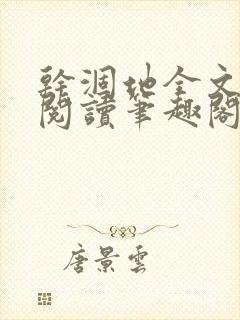 幹涸地全文
閱讀筆趣閣
唐景雲